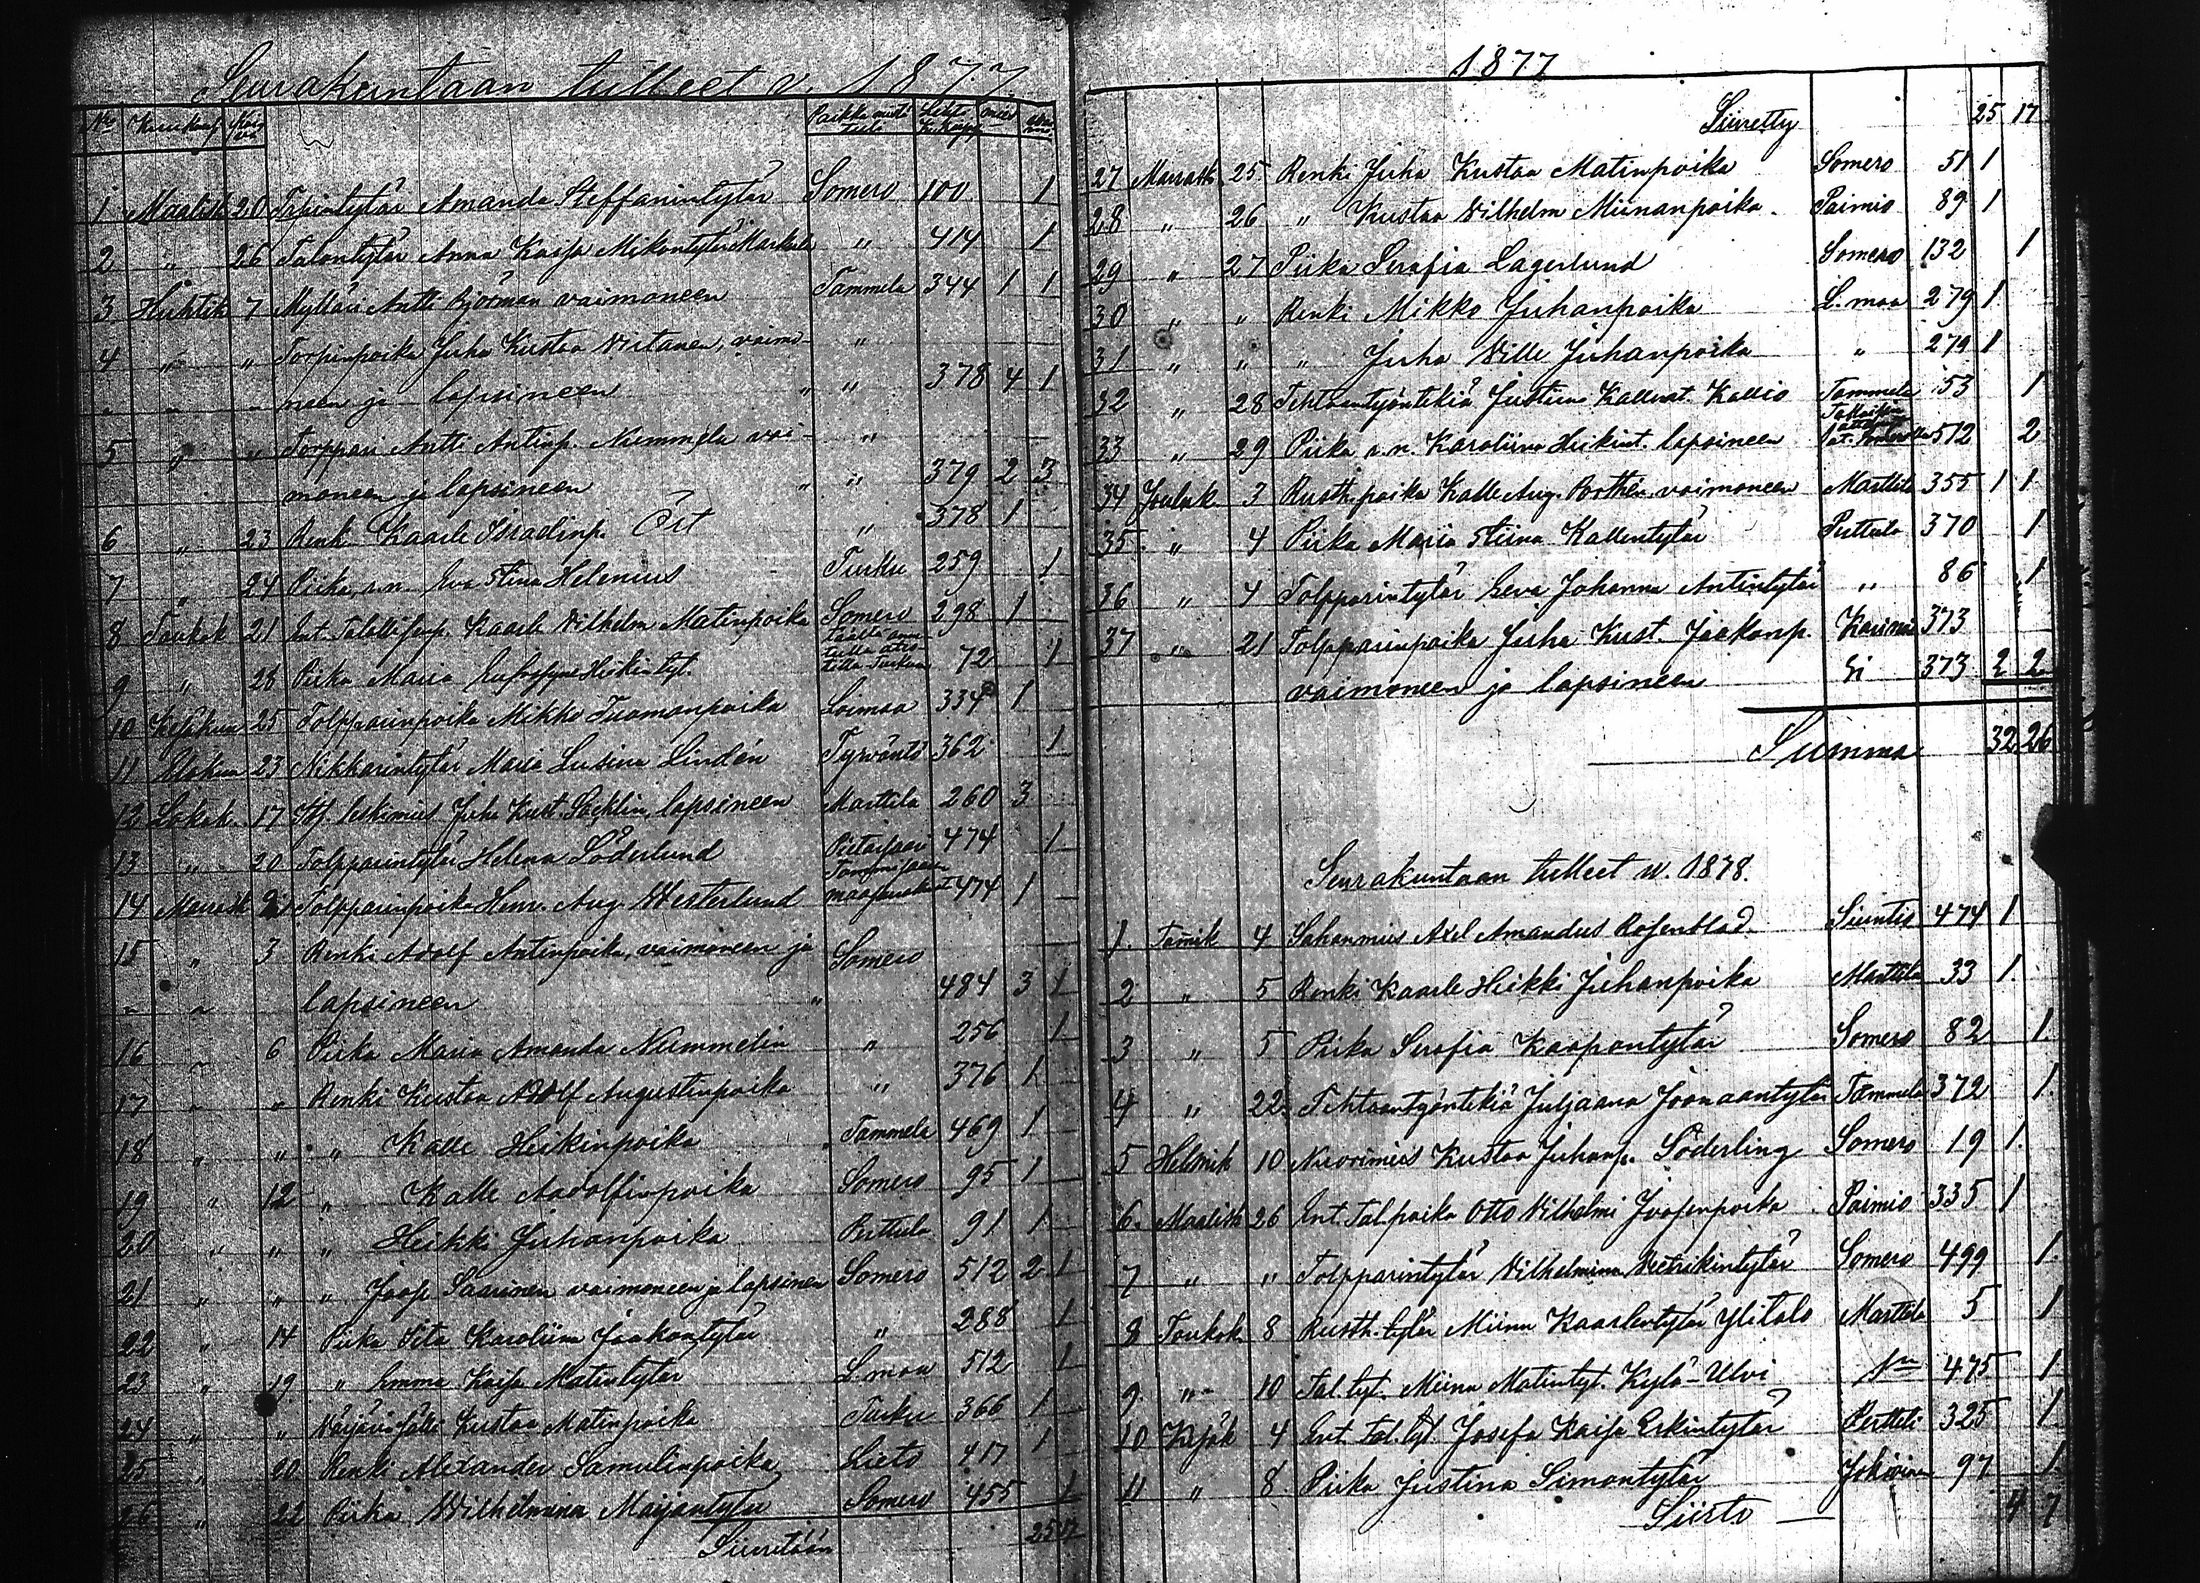 Seurakuntaan tulleet v. 1877.
No Kuukausi Päivä Paikka mistä tuli Lehti K. kirjassa
1 Maalisk 20 Amanda Steffanintytär Somero 100 1
2 " 26 Talontytär Anna Kaisa Mikontytär Markula " 414 1
3 Huhtik 7 Mylläri Antti Björman vaimoneen Tammela 344 1 1
4 " " Torpinpoika Juha Kustaa Virtanen, vaimo- "
neen ja lapsineen " 378 4 1
5 " " Torppari Antti Antinp. Niemmela vai- "
moneen ja lapsineen " 379 2 3
6 " 23 Renk Kaarle Israelinp. Öst " 378 1
7 " 24 Piika, a.n. Eva Stina Helenius Turku 259 1
8 Toukok 21 Ent. Kaarle Vilhelm Matinpoika Somero 298 1
9 " 28 Piika Maria Eufrosyne Heikintyt. 72 1
10 Kesäkuu 25 Tolpparinpoika Mikko Tuomanpoika Loimaa 334 1
11 Elokuu 23 Nikkarintytär Maria Lusina Lindén Tyrväntö 362 1
12 Lokak. 17 Itf. leskimies Juha Kust. Söcklin, lapsineen Marttila 260 3
13 " 20 Tolpparintytär Helena Söderlund Pietarsaari 474 1
14 Marrask 21 Tolpparinpoika Henr. Aug. Westerlund 474 1
15 " 3 Renki Adolf Antinpoika, vaimoneen ja Somero
lapsineen " 484 3 1
16 " 6 Piika Maria Amanda Nummelin " 256 1
17 " " Renki Kustaa Adolf Augustinpoika " 376 1
18 " " " Kalle Heikinpoika Tammela 469 1
19 " 12 " Kalle Adolfinpoika Somero 95 1
20 " " " Heikki Juhanpoika Perttula 91 1
21 " " " Joose Saarinen vaimoneen ja lapsineen Somero 512 2 1
22 " 14 Piika Iita Karoliina Jaakontytär " 288 1
23 " 19 " Emma Kaisa Matintytär L.maa 512 1
24 " " Värjärinsälli Kustaa Matinpoika Turku 366 1
25 " 20 Renki Alexander Samulinpoika Lieto 417 1
26 " 22 Piika Wilhelmina Maijantytär Somero 455 1
Siirretään 25 17
1877
Siirretty 25 17
27 Marrask 25 Renki Juha Kustaa Matinpoika Somero 51 1
28 " 26 " Kustaa Vilhelm Miinanpoika Paimio 89 1
29 " 27 Piika Serafia Lagerlund Somero 132 1
30 " " Renki Mikko Juhanpoika L.maa 279 1
31 " " " Juha Ville Juhanpoika " 279 1
32 " 28 Tehtaantyöntekiä Justiina Kallent. Kallio Tammela 53 1
33 " 29 Piika a.n. Karoliina Heikint. lapsineen 512 2
34 Jouluk. 3 Rusth. poika Kalle Aug. Borthén, vaimoneen Marttila 355 1 1
35 " 4 Piika Maria Stiina Kallentytär Perttula 370 1
36 " 4 Tolpparintytär Eeva Johanna Antintytär " 86 1
37 " 21 Tolpparinpoika Juha Kust. Jaakonp. Karinai 373
vaimoneen ja lapsineen Ei 373 2 2
Summa 32 26
Seurakuntaan tulleet w. 1878.
1. Tamik 4 Sahanmies Axel Amandus Rosenblad Siuntio 474 1
2 " 5 Renki Kaarle Heikki Juhanpoika Marttila 33 1
3 " 5 Piika Serafia Kaapontytär Somero 82 1
4 " 22 Tehtaantyöntekiä Juljaana Joonaantytär Tammela 372 1
5 Helmik 10 Nuorimies Kustaa Juhanp. Söderling Somero 19 1
6. Maalisk 26 Ent. Tal.poika Otto Vilhelmi Joosenpoika Paimio 335 1
7 " " Tolpparintytär Vilhelmina Fredrikintytär Somero 499 1
8 Toukok 8 Rusth. tytär Miina Kaarlentytär Ylitalo Marttila 5 1
9. " 10 Tal.tyt. Miina Matintyt. Kylä-Ulvi 475 1
10 Kesäk 4 Ent. Tal.tyt. Josefa Kaisa Erkintytär Pertteli 325 1
11 " 8 Piika Justina Simontytär Jokioinen 97 1
Siirto 4 7